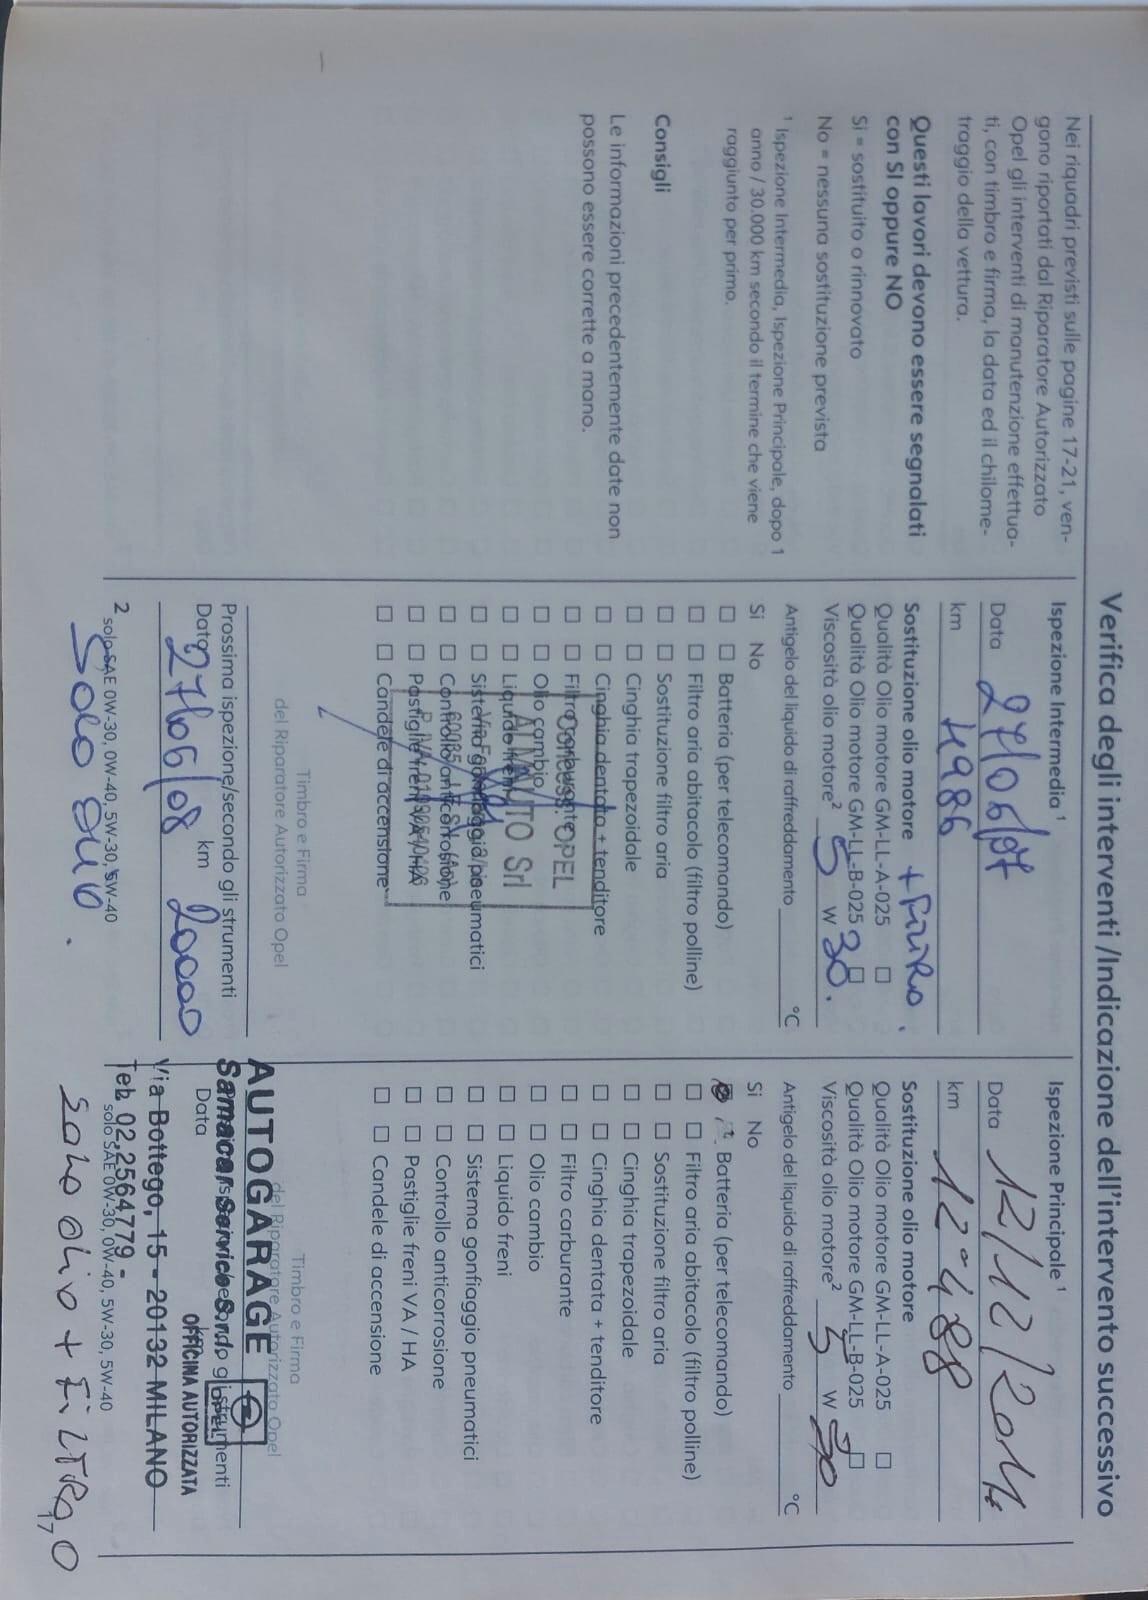 Verifica degli interventi /Indicazione dell'intervento successivo
Nei riquadri previsti sulle pagine 17-21, ven-
gono riportati dal Riparatore Autorizzato
Opel gli interventi di manutenzione effettua-
ti, con timbro e firma, la data ed il chilome-
traggio della vettura.
Questi lavori devono essere segnalati
con SI oppure NO
Si = sostituito o rinnovato
No = nessuna sostituzione prevista
¹ Ispezione Intermedia, Ispezione Principale, dopo 1
anno / 30.000 km secondo il termine che viene
raggiunto per primo.
Consigli
Le informazioni precedentemente date non
possono essere corrette a mano.
Ispezione Intermedia ¹
Data 27/06/07
km 4986
Sostituzione olio motore + FILTRO.
Qualità Olio motore GM-LL-A-025 □
Qualità Olio motore GM-LL-B-025 □
Viscosità olio motore² 5 W 30.
Antigelo del liquido di raffreddamento °C
Si No
□ □ Batteria (per telecomando)
□ □ Filtro aria abitacolo (filtro polline)
□ □ Sostituzione filtro aria
□ □ Cinghia trapezoidale
□ □ Cinghia dentata + tenditore
□ □ Filtro carburante
□ □ Olio cambio
□ □ Liquido freni
□ □ Sistema gonfiaggio pneumatici
□ □ Controllo anticorrosione
□ □ Pastiglie freni VA / HA
□ □ Candele di accensione
OPEL
AUTO Srl
Timbro e Firma
del Riparatore Autorizzato Opel
Prossima ispezione/secondo gli strumenti
Data 27/06/08 km 20000
2 solo SAE 0W-30, 0W-40, 5W-30, 5W-40
Solo
Ispezione Principale ¹
Data 12/12/
km 12488
Sostituzione olio motore
Qualità Olio motore GM-LL-A-025 □
Qualità Olio motore GM-LL-B-025 □
Viscosità olio motore² 5 W 30
Antigelo del liquido di raffreddamento °C
Si No
Batteria (per telecomando)
□ □ Filtro aria abitacolo (filtro polline)
□ □ Sostituzione filtro aria
□ □ Cinghia trapezoidale
□ □ Cinghia dentata + tenditore
□ □ Filtro carburante
□ □ Olio cambio
□ □ Liquido freni
□ □ Sistema gonfiaggio pneumatici
□ □ Controllo anticorrosione
□ □ Pastiglie freni VA / HA
□ □ Candele di accensione
Timbro e Firma
del Riparatore Autorizzato Opel
AUTOGARAGE
OPEL
strumenti
Data
OFFICINA AUTORIZZATA
Via Bottego, 15 - 20132 MILANO
Tel. 02.2564779 -
solo SAE 0W-30, 0W-40, 5W-30, 5W-40
Solo olio + FILTRO
17